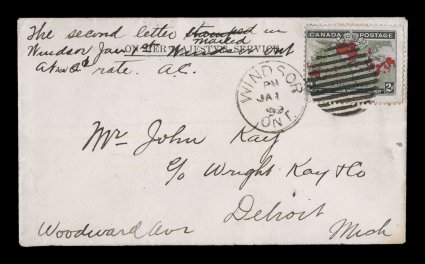 The second letter stamped in
mailed
Windsor Jan 1st Windsor Ont
ON HER MAJESTY'S SERVICE
At new 2c rate. A.C.
CANADA POSTAGE
2
WINDSOR
PM
JA 1
ONT.
Mr John Kay
c/o Wright Kay & Co
Detroit
Woodward Ave
Mich